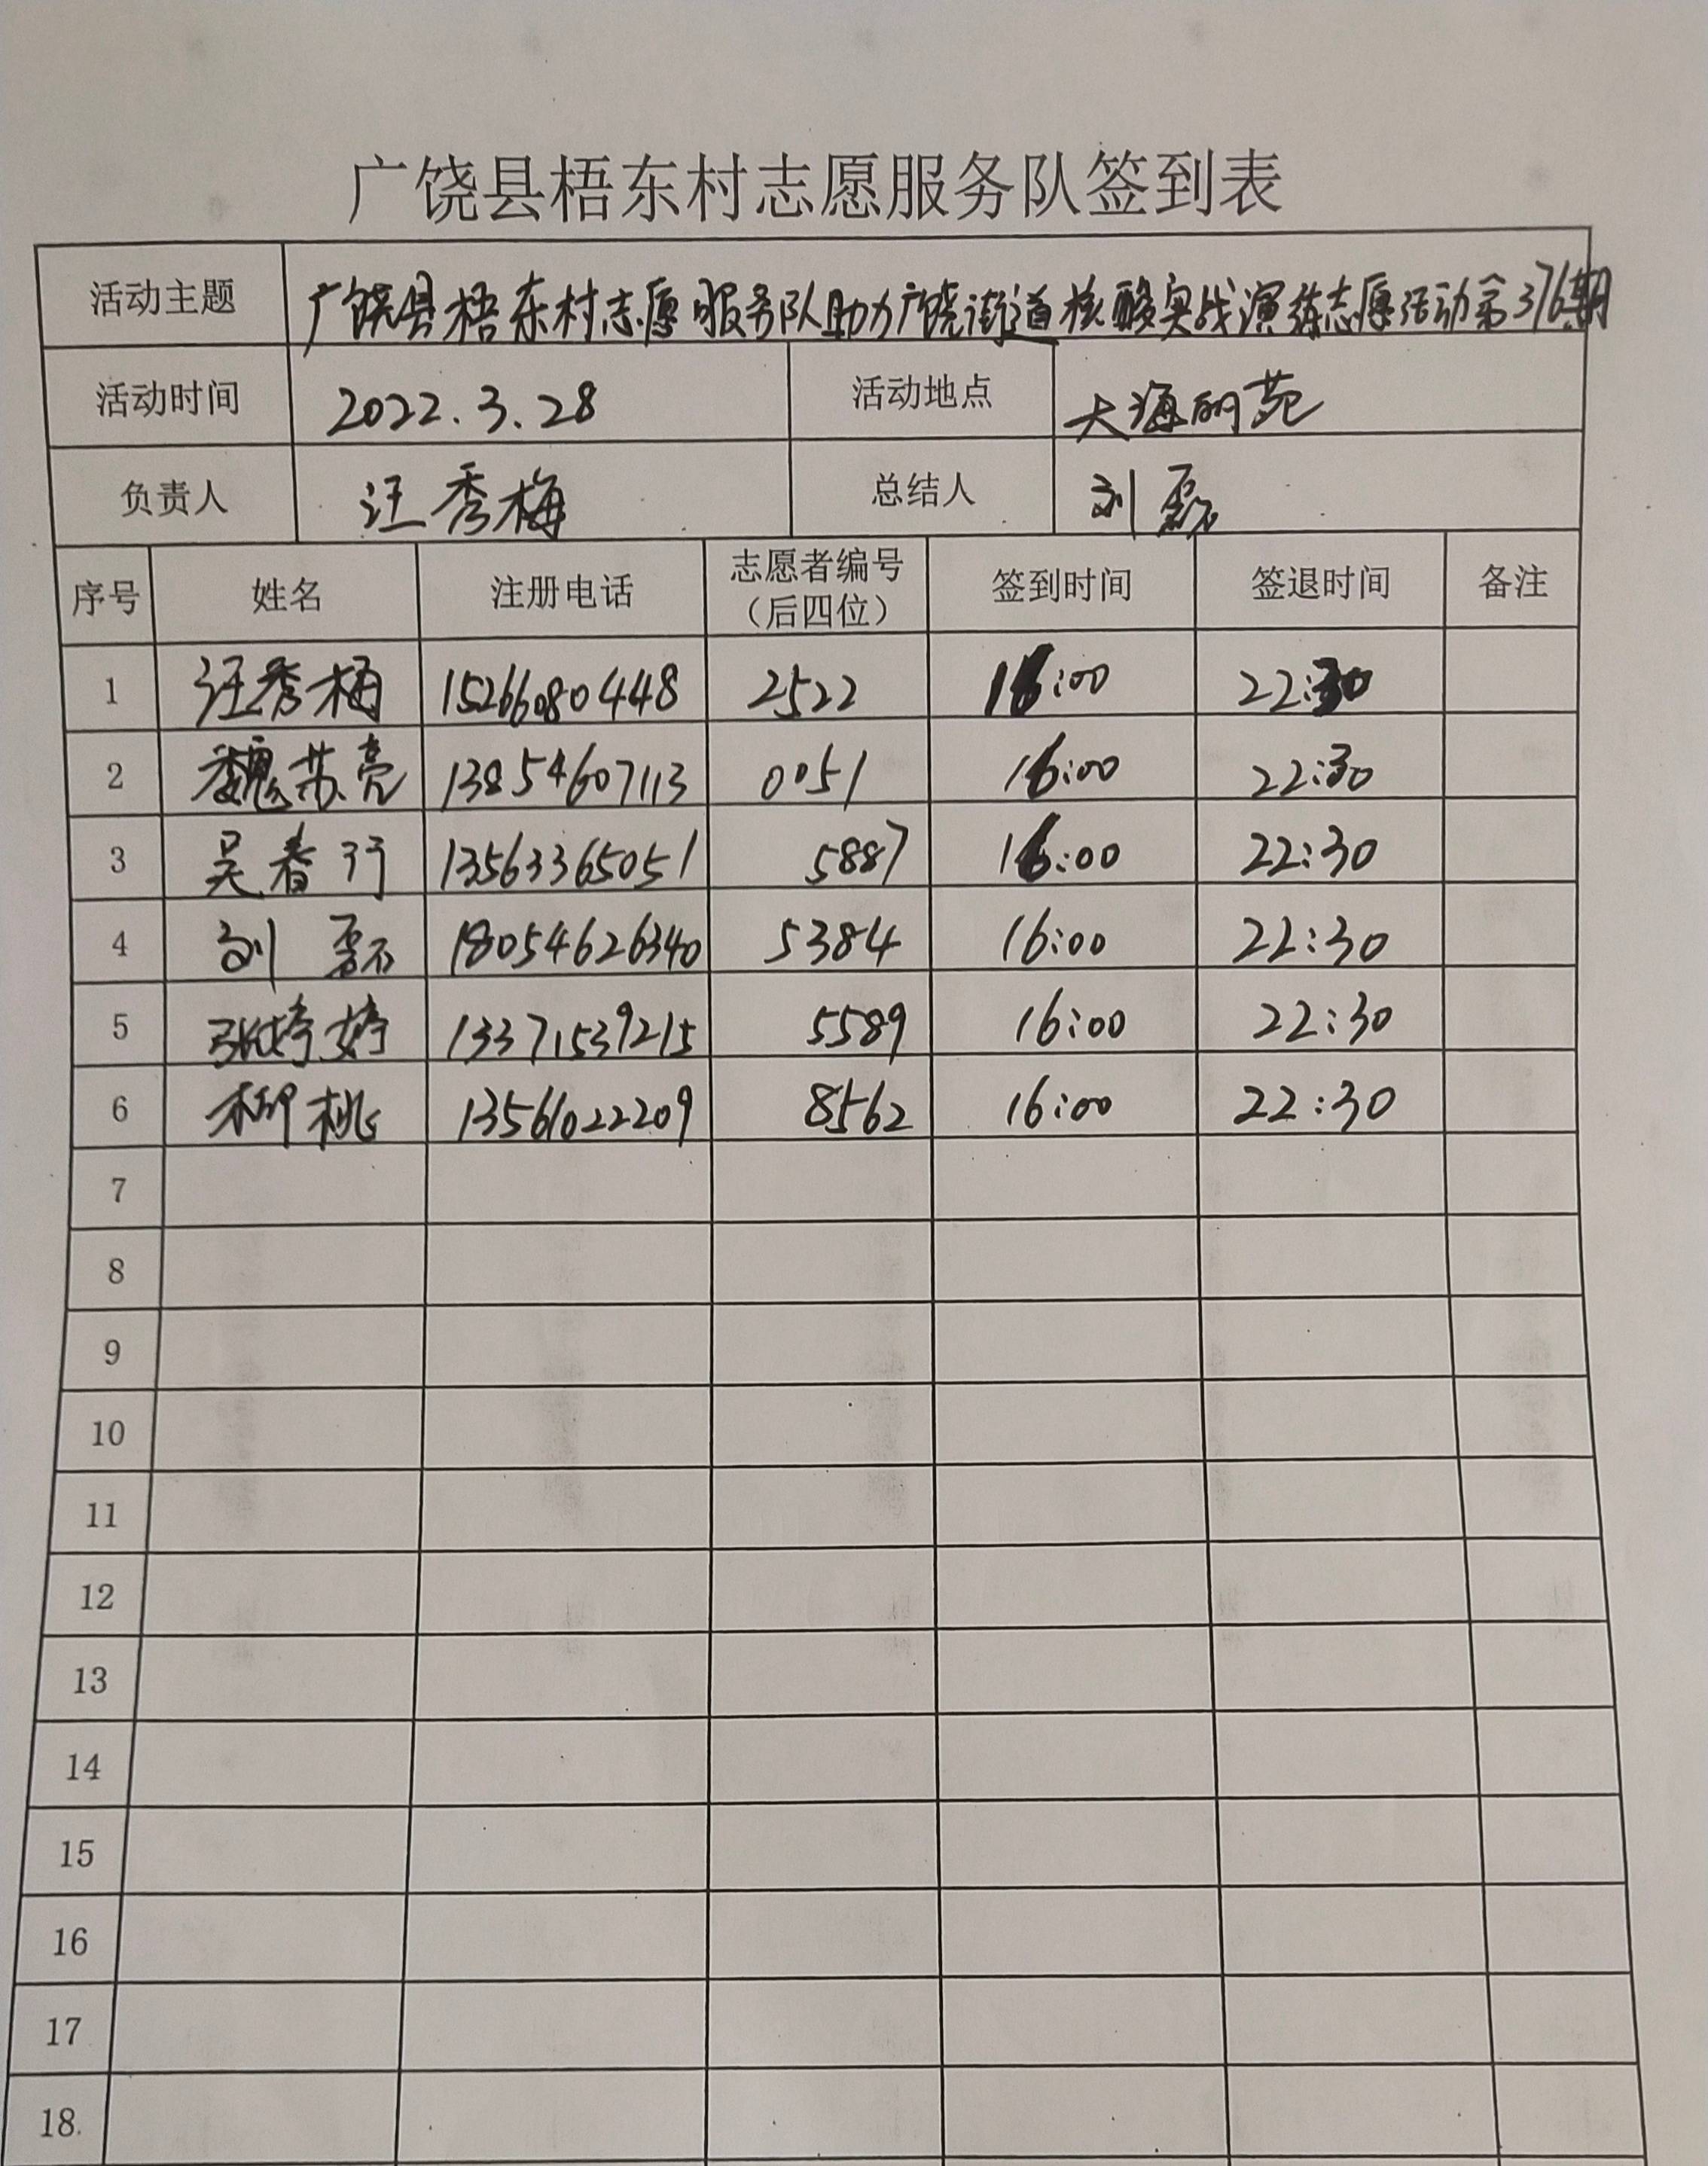 广饶县梧东村志愿服务队签到表
活动主题 广饶县梧东村志愿服务队助力广饶街道核酸实战演练志愿活动第376期
活动时间 2022.3.28 活动地点 大海丽苑
负责人 汪秀梅 总结人 刘磊
序号 姓名 注册电话 志愿者编号（后四位） 签到时间 签退时间 备注
1 汪秀梅 15266080448 2522 16:00 22:30
2 魏苏亮 13854607113 0051 16:00 22:30
3 吴春行 13563365051 5887 16:00 22:30
4 刘磊 18054626340 5384 16:00 22:30
5 张婷婷 13371539215 5589 16:00 22:30
6 柳桃 13561022209 8562 16:00 22:30
7
8
9
10
11
12
13
14
15
16
17
18